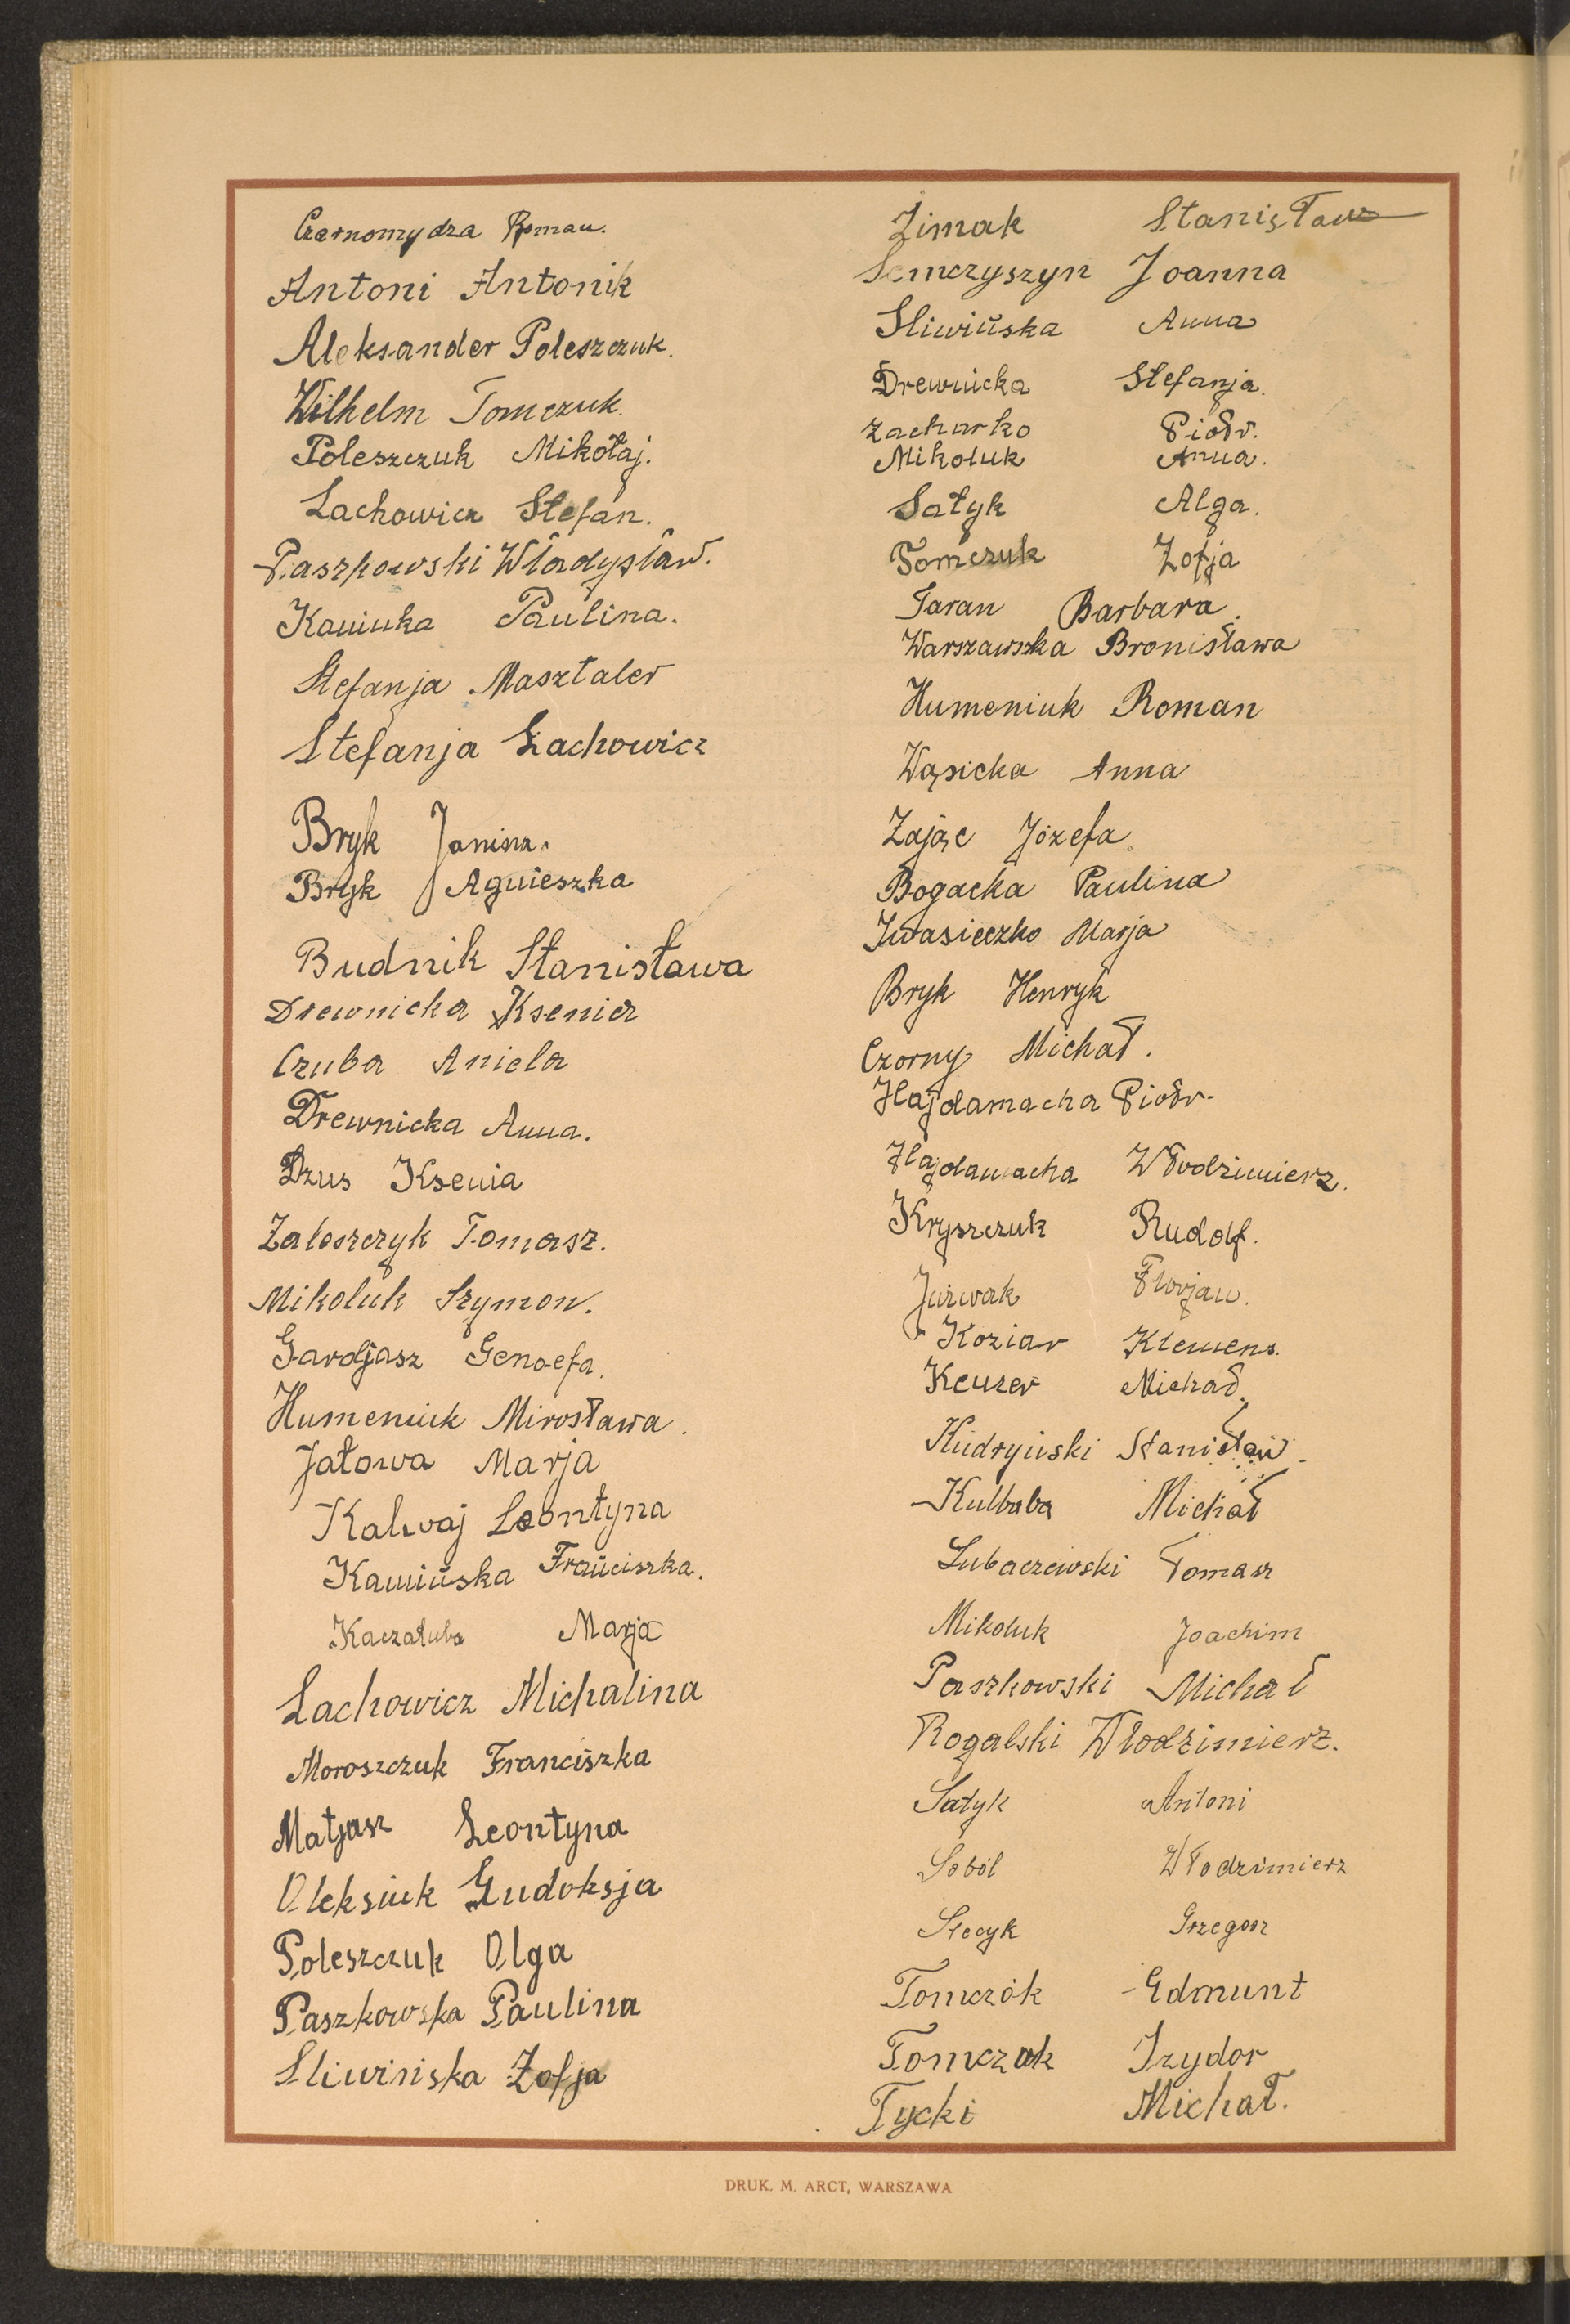 Czarnomydza Roman.
Antoni Antonik
Aleksander Poleszczuk.
Wilhelm Tomczuk.
Poleszczuk Mikołaj.
Lachowicz Stefan.
Paszkowski Władysław.
Kaniuka Paulina.
Stefanja Masztaler
Stefanja Lachowicz
Bryk Janina.
Bryk Agnieszka
Budnik Stanisława
Drewnicka Ksenia
Czuba Aniela
Drewnicka Anna.
Dzus Ksenia
Zaleszczyk Tomasz.
Mikoluk Szymon.
Gardjasz Genoefa.
Humeniuk Mirosława.
Jatowa Marja
Kalwaj Leontyna
Kamińska Franciszka.
Kaczałuba Marja
Lachowicz Michalina
Moroszczuk Franciszka
Matjasz Leontyna
Oleksiuk Eudoksja
Poleszczuk Olga
Paszkowska Paulina
Sliwinska Zofja
Zimak Stanisław
Semczyszyn Joanna
Sliwińska Anna
Drewnicka Stefanja.
Zacharko Piotr.
Mikoluk Anna.
Satyk Alga.
Tomczuk Zofja
Taran Barbara.
Warszawska Bronisława
Humeniuk Roman
Wąsicka Anna
Zając Józefa.
Bogacka Paulina
Iwasieczko Marja
Bryk Henryk
Czorny Michał.
Hajdamacha Piotr.
Hajdamacha Włodzimierz.
Kryszczuk Rudolf.
Jurwak Florjan.
Koziar Klemens.
Keuzer Michał.
Kudryński Stanisław.
Kulbaba Michał
Lubaczewski Tomasz
Mikoluk Joachim
Paszkowski Michał
Rogalski Włodzimierz.
Satyk Antoni
Soból Włodzimierz
Stecyk Grzegorz
Tomczak Edmunt
Tomczak Izydor
Tycki Michał.
DRUK. M. ARCT, WARSZAWA